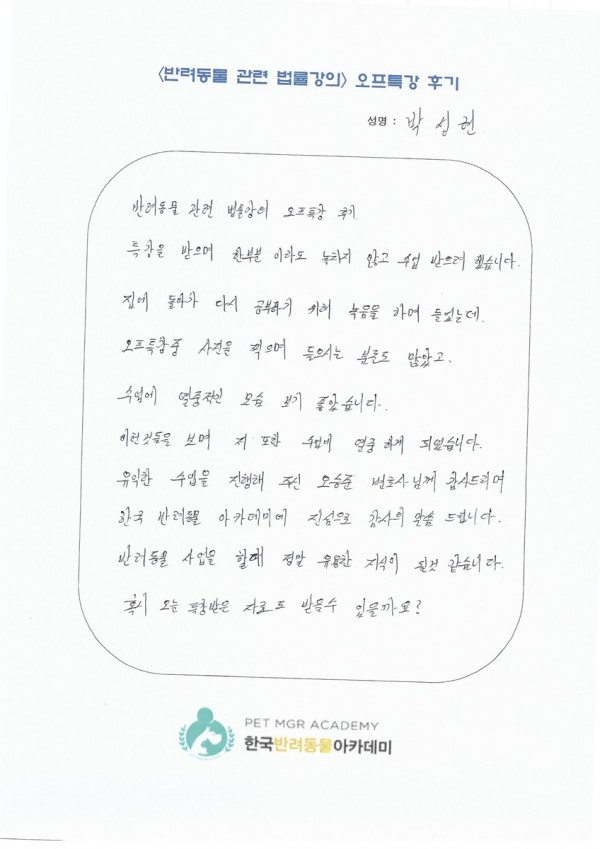 <반려동물 관련 법률강의> 오프특강 후기
성명 : 박성현
반려동물 관련 법률강의 오프특강 후기
특강을 받으며 한부분 이라도 놓치지 않고 수업 받으려 했습니다.
집에 돌아가 다시 공부하기 위해 녹음을 하며 들었는데.
오프특강중 사진을 찍으며 들으시는 분들도 많았고.
수업에 열중적인 모습 보기 좋았습니다.
이런것들을 보며 저 또한 수업에 열중 하게 되었습니다.
유익한 수업을 진행해 주신 오승준 변호사님께 감사드리며
한국 반려동물 아카데미에 진심으로 감사의 말씀 드립니다.
반려동물 사업을 할때 정말 유용한 지식이 될것 같습니다.
혹시 오늘 특강받은 자료도 받을수 있을까요?
PET MGR ACADEMY
한국반려동물아카데미